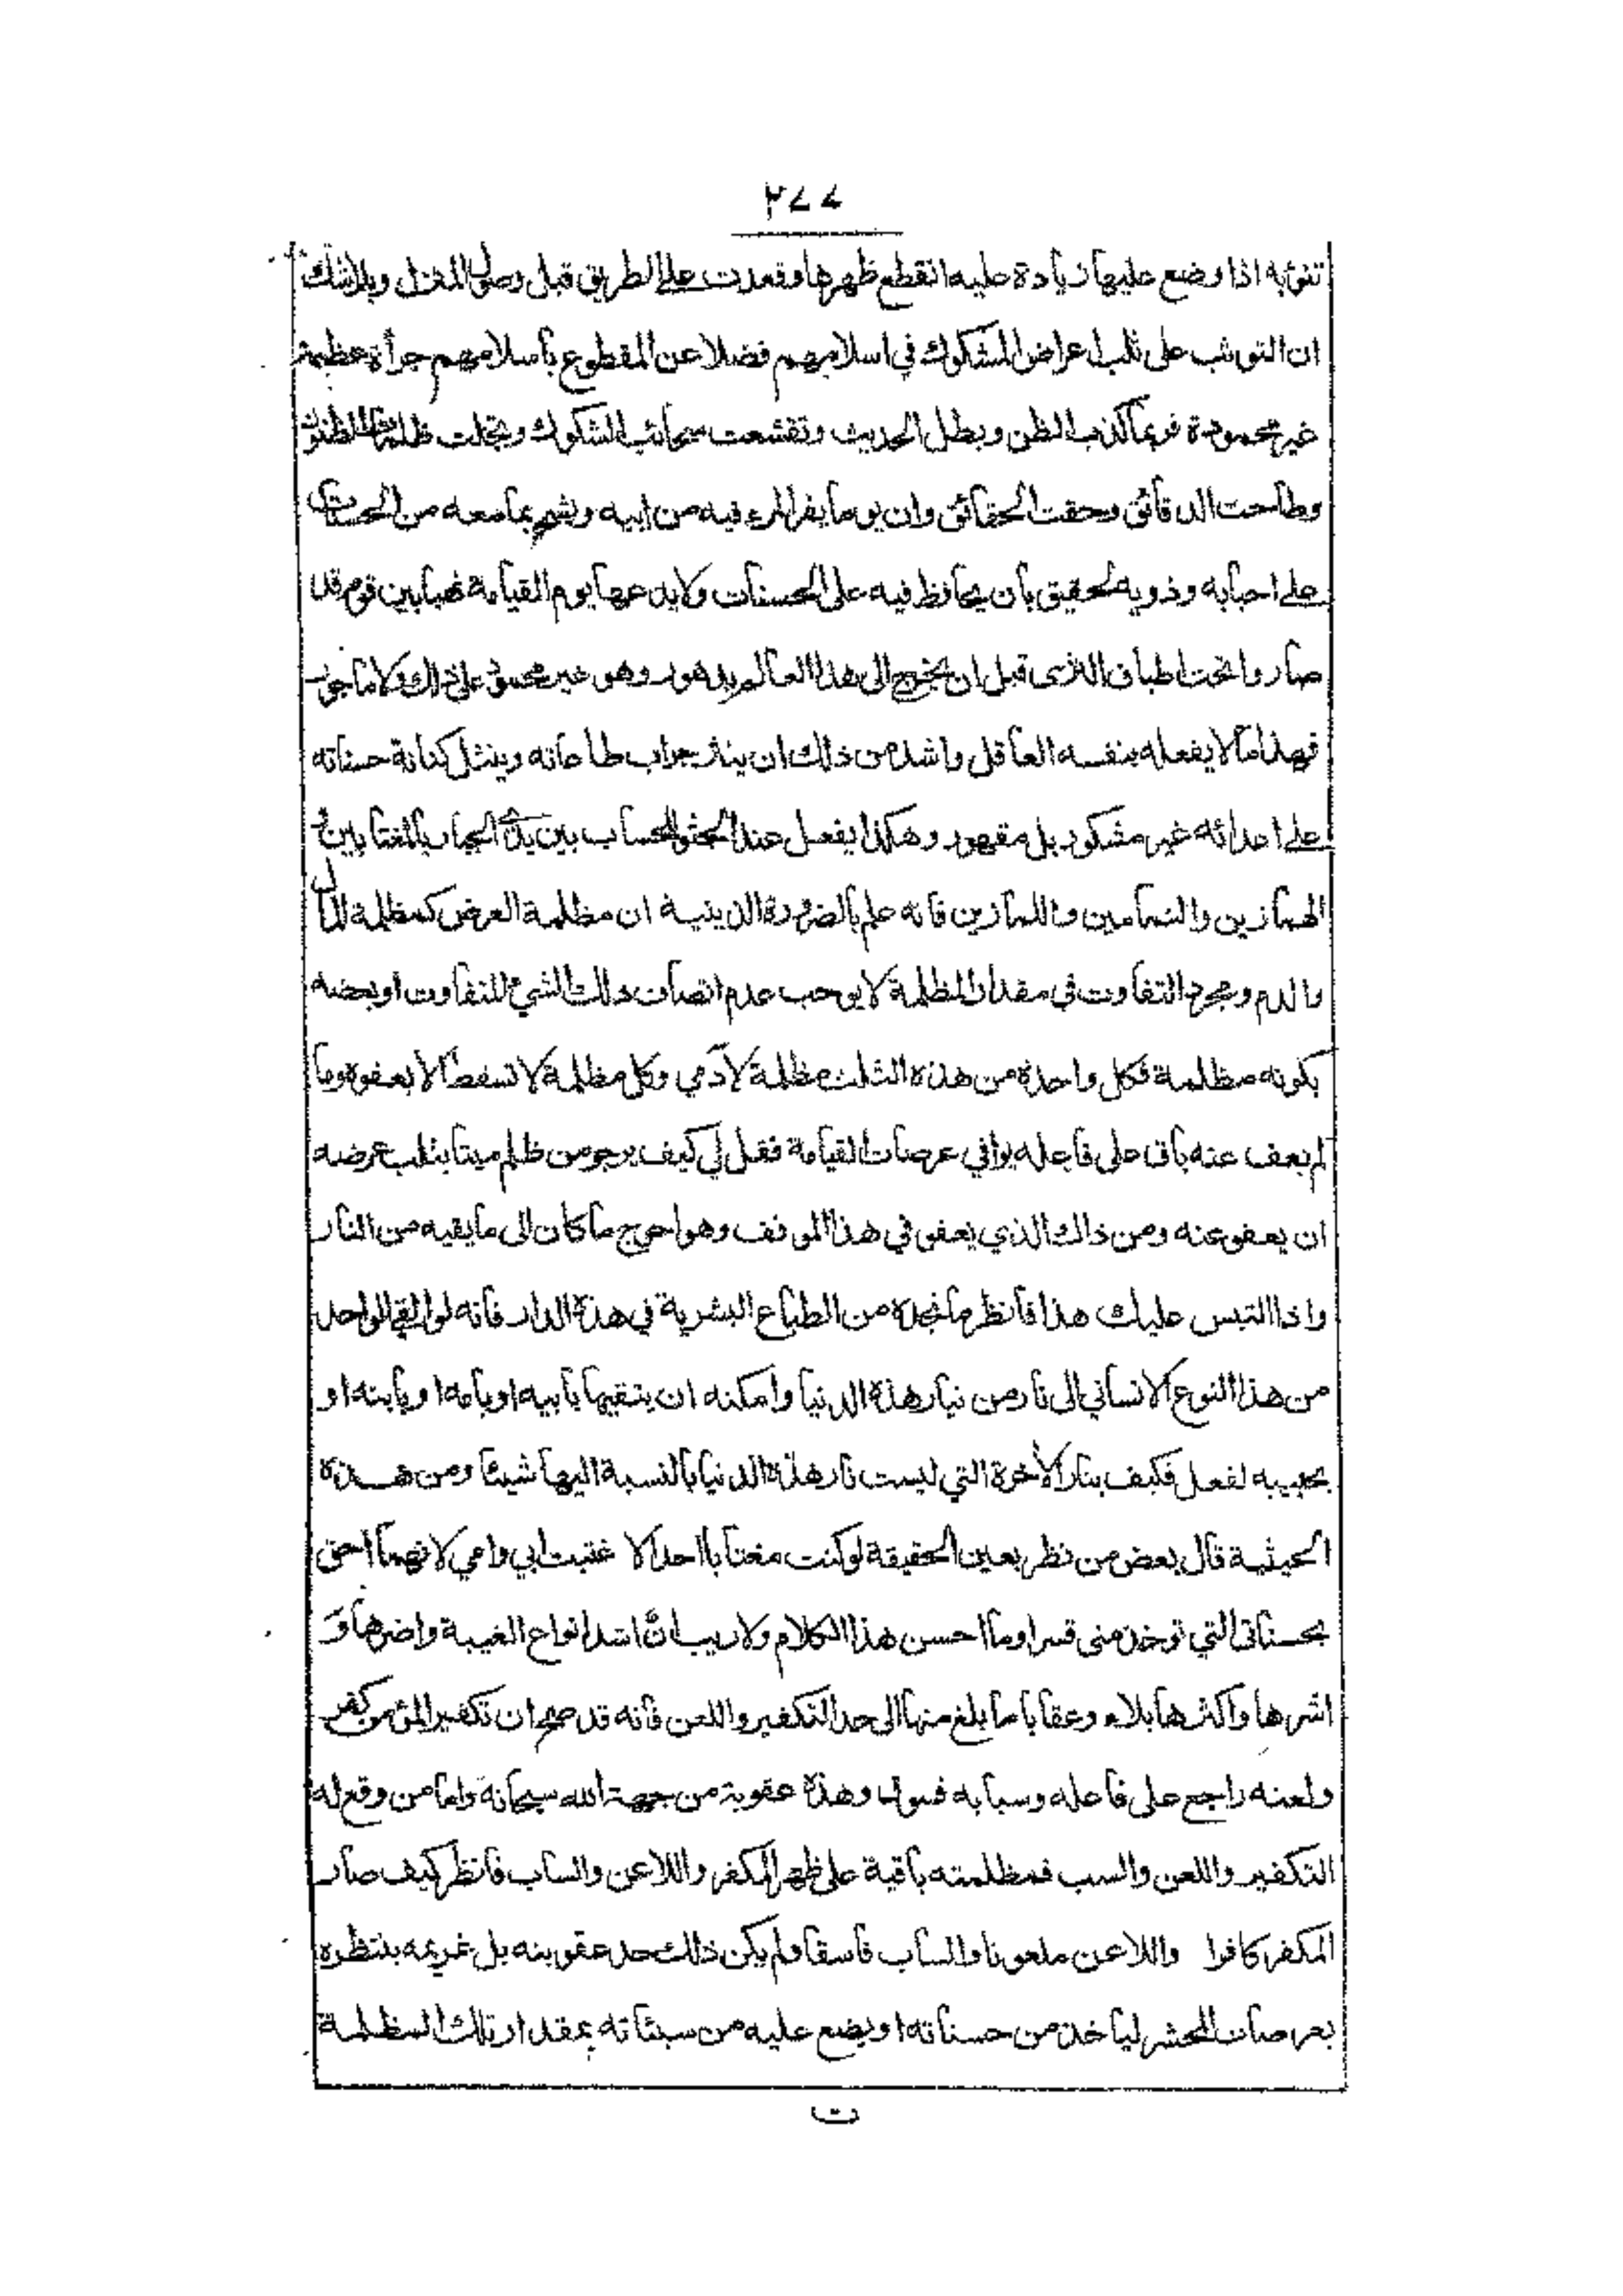 ٢٧٧
تنؤ به اذا وضع عليها زيادة عليه انقطع ظهرها وقعدت على الطريق قبل وصول المنزل وبلا شك
ان التوثب على ثلب اعراض المشكوك في اسلامهم فضلا عن المقطوع بأسلامهم جرأة عظيمة
غير محمودة فربما كذب الظن وبطل الحديث وتقشعت سحائب الشكوك وتجلت ظلمات الظنون
وطاحت الدقائق وحقت الحقائق وان يوما يفر المرء فيه من ابيه ويشح بما معه من الحسنات
على احبابه وذويه لحقيق بأن يحافظ فيه على الحسنات ولا يدعها يوم القيامة نهبا بين قوم قد
صاروا تحت اطباق الثرى قبل ان يخرج الى هذا العالم بدهور وهو غير محمود على ذلك ولا مأجور
فهذا ما لا يفعله بنفسه العاقل واشد من ذلك ان ينثر جراب طاعاته وينثل كنانة حسناته
على اعدائه غير مشكور بل مقهور وهكذا يفعل عند الحشر للحساب بين يدي الجبار بالمغتابين و
الهمازين والنمامين واللمازين فانه علم بالضرورة الدينية ان مظلمة العرض كمظلمة المال
والدم ومجرد التفاوت في مقدار المظلمة لا يوجب عدم اتصاف ذلك الشيئ المتفاوت او بعضه
بكونه مظلمة فكل واحدة من هذه الثلث مظلمة لآدمي وكل مظلمة لا تسقط الا بعفوه وما
لم يعف عنه باق على فاعله يوافي عرصات القيامة فقل لي كيف يرجو من ظلم ميتا بثلب عرضه
ان يعفو عنه ومن ذلك الذي يعفو في هذا الموقف وهو احوج ما كان الى ما يقيه من النار
واذا التبس عليك هذا فانظر ما تجده من الطباع البشرية في هذه الدار فانه لو القي الواحد
من هذا النوع الانساني الى نار من نيار هذه الدنيا وامكنه ان يتقيها بأبيه او بامه او بابنه او
بحبيبه لفعل فكيف بنار الأخرة التي ليست نار هذه الدنيا بالنسبة اليها شيئا ومن هذه
الحيثية قال بعض من نظر بعين الحقيقة لو كنت مغتابا احدا لا غتبت ابي وامي لانهما احق
بحسناتي التي توخذ مني قسرا وما احسن هذا الكلام ولا ريب انّ اشد انواع الغيبة واضرها وَ
اشرها واكثرها بلاء وعقابا ما بلغ منها الى حد التكفير واللعن فأنه قد صح ان تكفير المؤمن كفر
ولعنه راجع على فاعله وسبابه فسوق وهذه عقوبة من جهة الله سبحانه واما من وقع له
التكفير واللعن والسب فمظلمته باقية على ظهر المكفر واللاعن والساب فانظر كيف صار
المكفر كافرا واللاعن ملعونا والساب فاسقا ولم يكن ذلك حد عقوبته بل غريمه ينتظره
بعرصات المحشر لياخذ من حسناته او يضع عليه من سيئاته بمقدار تلك المظلمة
ت